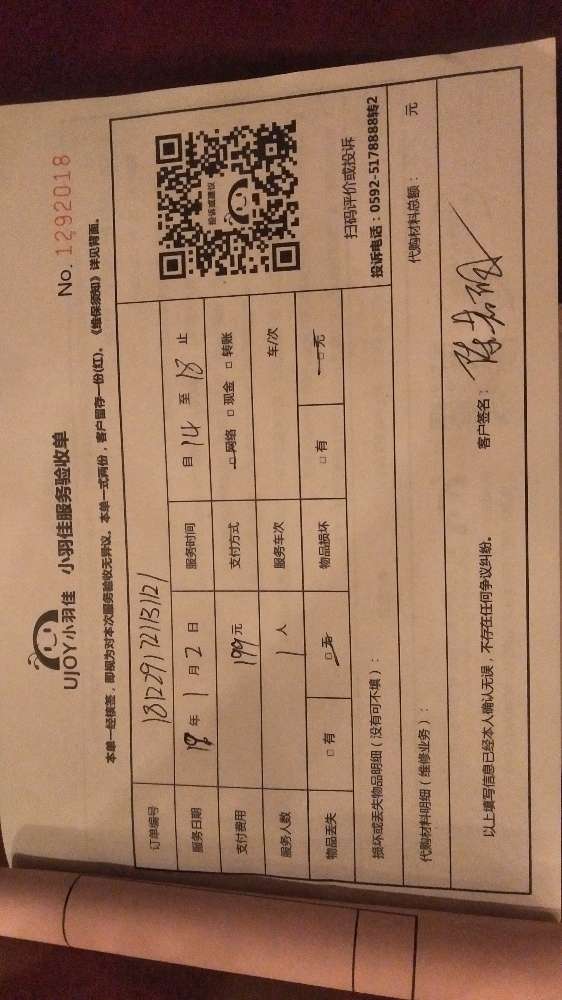 UJOY小羽佳 小羽佳服务验收单
No. 1292018
本单一经核签，即视为对本次服务验收无异议。本单一式两份，客户留存一份(红)。《维保须知》详见背面。
订单编号 181229172113121
服务日期 年 1 月 2 日 服务时间 自 14 至 18 止
支付费用 199 元 支付方式 □ 网络 □ 现金 □ 转账
服务人数 1 人 服务车次 车/次
物品丢失 □ 有 □ 无 物品损坏 □ 有 □ 无
投诉或建议
扫码评价或投诉
投诉电话：0592-5178888转2
损坏或丢失物品明细（没有可不填）：
代购材料明细（维修业务）： 代购材料总额： 元
以上填写信息已经本人确认无误，不存在任何争议纠纷。 客户签名：